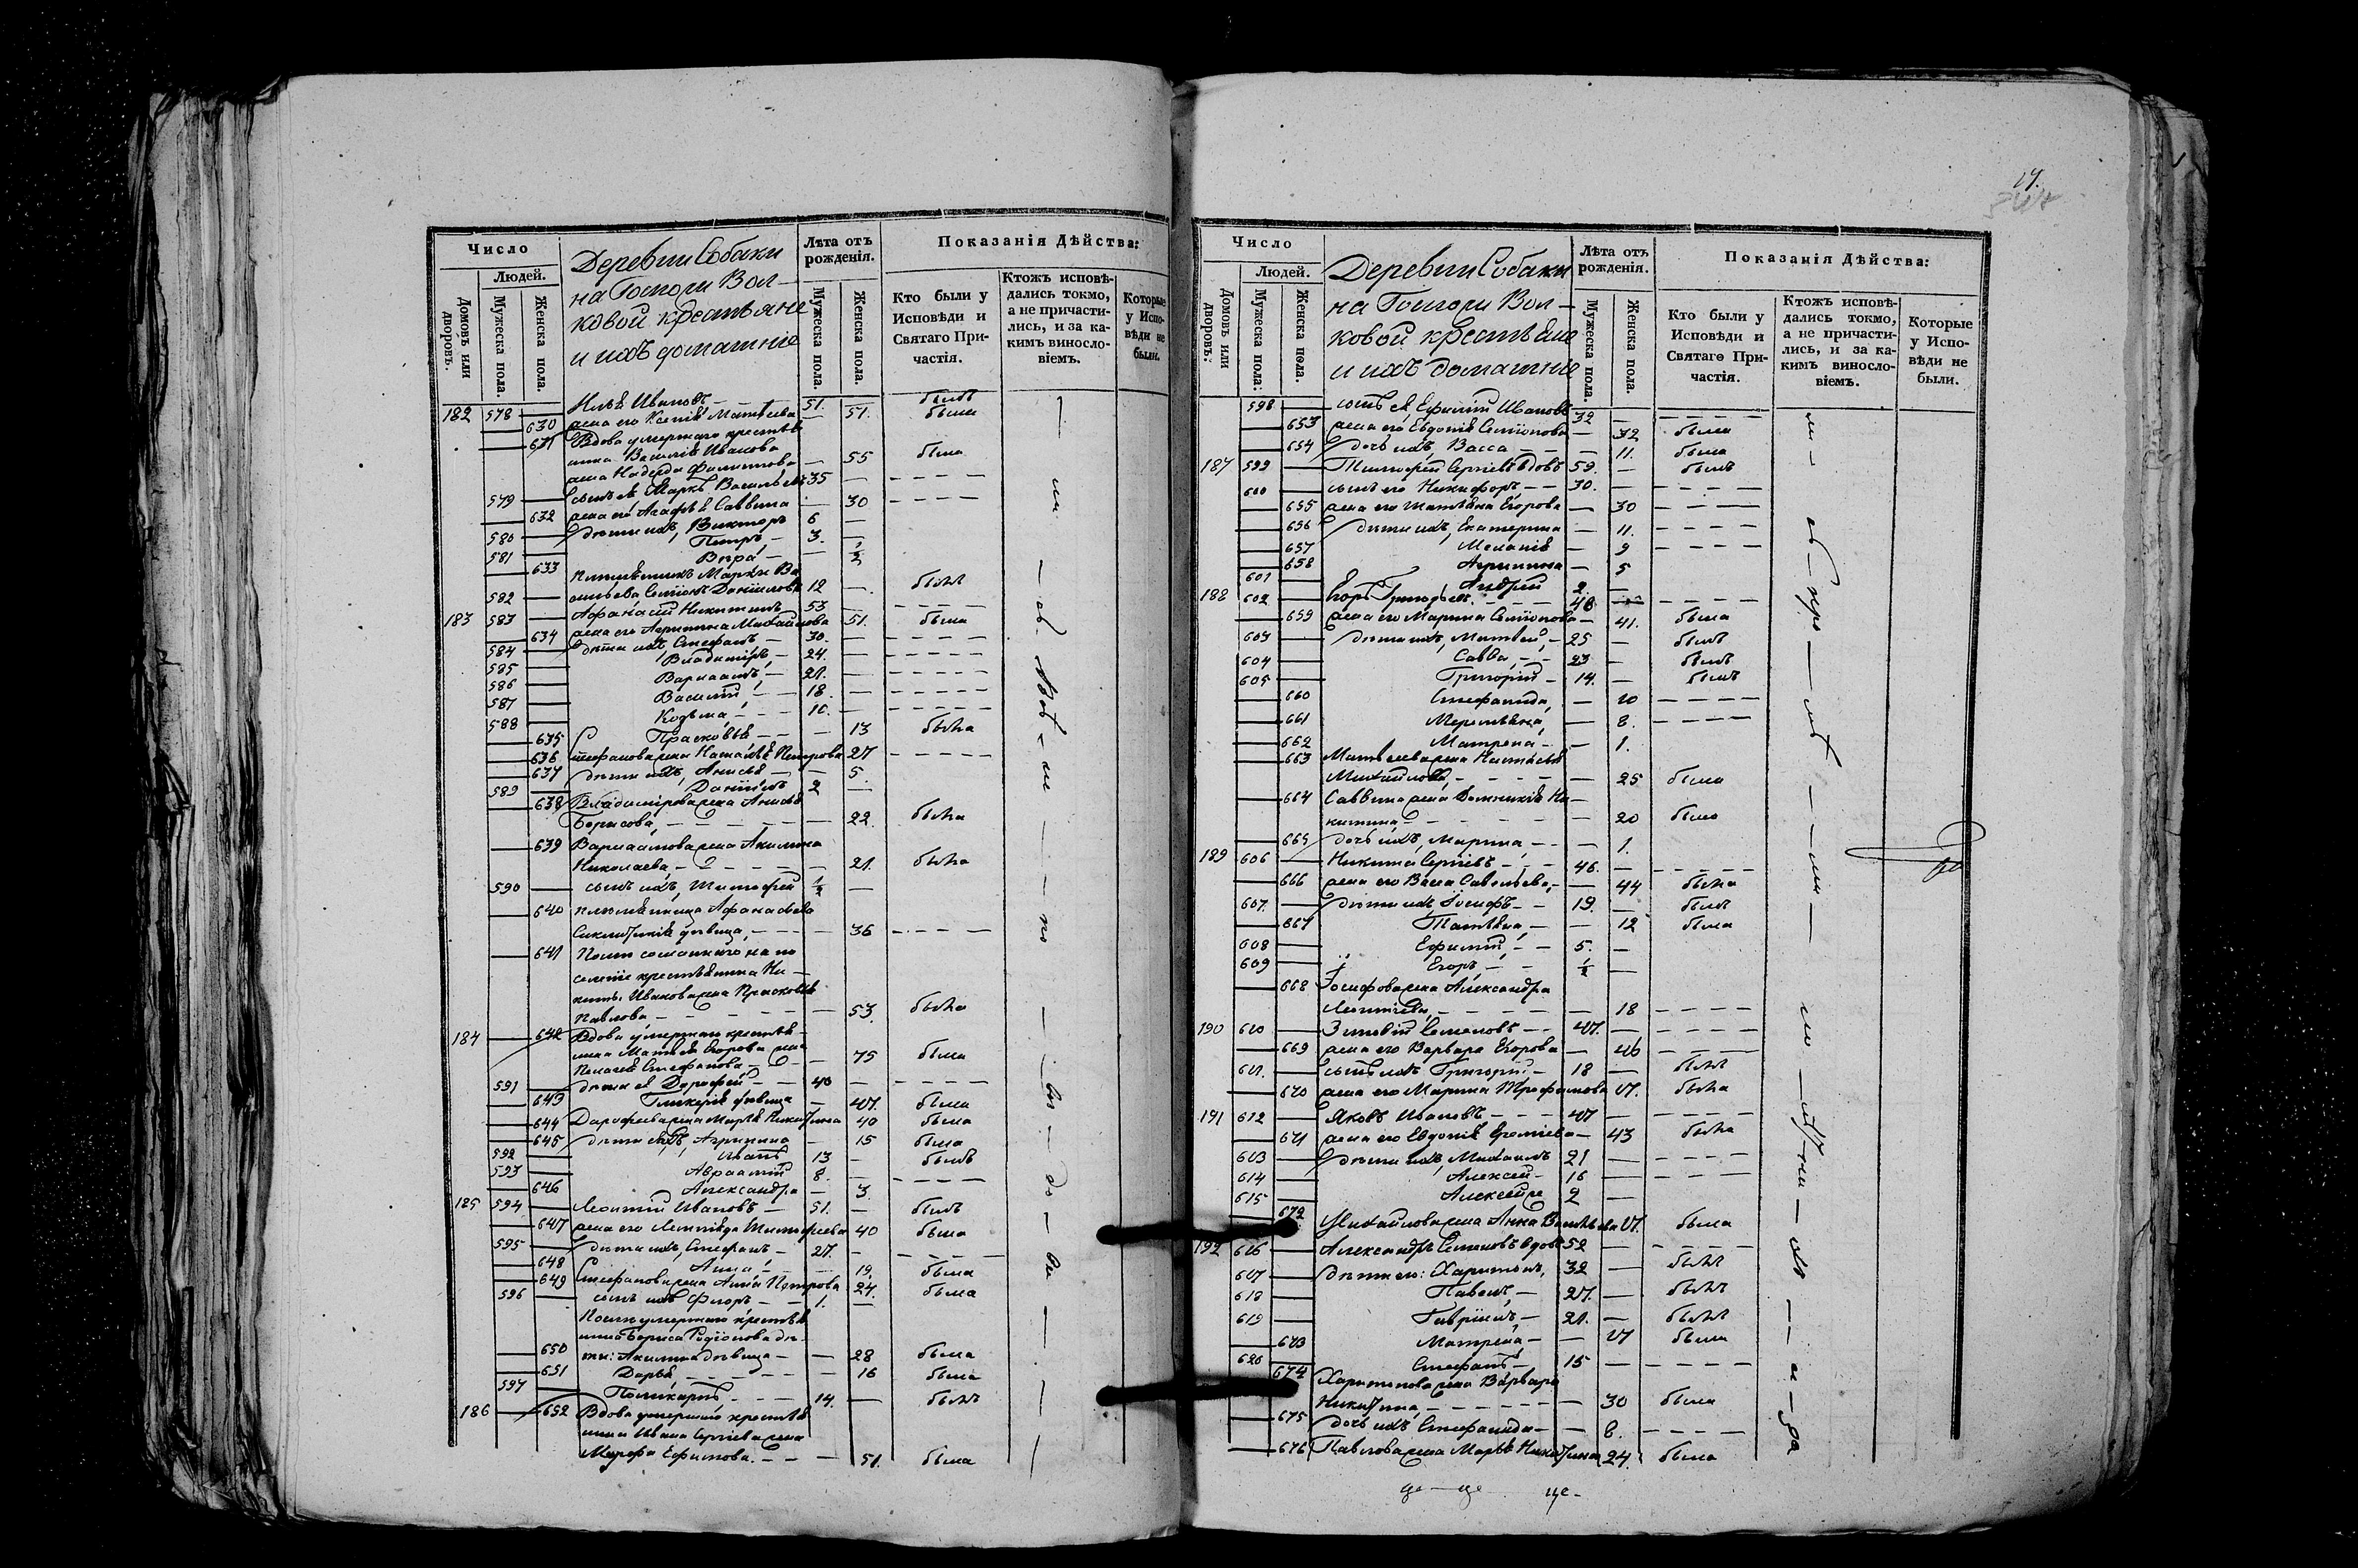 Число
Людей.
Домовъ или дворовъ.
Мужеска пола.
Женска пола.
Деревни Собаки
на Госпожи Вол-
ковой крестьяне
и ихъ домашніе
Лѣта отъ рожденія.
Мужеска пола.
Женска пола.
Показанія Дѣйства:
Кто были у Исповѣди и Святаго Причастія.
Ктожъ исповѣдались токмо, а не причастились, и за какимъ винословіемъ.
Которые у Исповѣди не были.
182 578 Ивановъ 51. былъ
630 жена его Ксенія Матвѣева 51. была
631 Вдова умершаго крестья-
нина Василія Иванова
жена Филиппова 55 была
579 сынъ ея Маркъ Васильевъ 35
632 жена его Агафья Саввина 30
580 дѣти ихъ, Викторъ 6
581 Петръ 3.
633 Вѣра ½
племянникъ Марки Ва-
582 сильева Семіонъ Даниловъ 12 былъ
183 583 Афанасій Никитинъ 53
634 жена его Агрипина Михайлова 51. была
584 дѣти ихъ Стефанъ 30.
585 Владимиръ 24.
586 Варлаамъ 21.
587 Василій 18.
588 Козьма 10.
635 Прасковья 13 была
636 Стефанова жена Наталья Петрова 27
637 дѣти ихъ, Анисья 5
589 Даніилъ 2
638 Владимірова жена Анисья
Борисова 22. была
639 Варлаамова жена Акилина
Николаева 21. была
590 сынъ ихъ, Тимофей ½
640 племянница Афанасьева
дѣвица, 36
641 После сосланнаго на по-
селеніе крестьянина Ни-
киты Иванова жена Прасковья
Павлова 53. была
184 642 Вдова умершаго крестья-
нина Матвея Егорова жена
Пелагея Стефанова 75 была
591 дѣти ея Дорофей 40
643 Гликерія дѣвица 47. была
644 Дорофеева жена Марья Никитина 40 была
645 дѣти ихъ, Агрипина 15 была
592 Иванъ 13 былъ
593 Авраамій 8.
646 Александра 3.
185 594 Леонтій Ивановъ 51. былъ
647 жена его Тимофеева 40 была
595 дѣти ихъ, Стефанъ 27.
648 Анна 19 была
649 Стефанова жена Анна Петрова 24. была
596 сынъ ихъ Флоръ 1.
После умершаго крестья-
нина Бориса Родіонова дѣ-
650 ти: Акилина дѣвица 28 была
651 Дарья 16 была
597 Поликарпъ 14. былъ
186 652 Вдова умершаго крестья-
нина Ивана Сергіева жена
Марфа Ефимова 51. была
17.
Число
Людей.
Домовъ или дворовъ:
Мужеска пола:
Женска пола.
Деревни Собаки
на Госпожи Вол-
ковой крестьяне
и ихъ домашніе
Лѣта отъ рожденія.
Мужеска пола.
Женска пола.
Показанія Дѣйства:
Кто были у Исповѣди и Святаго Причастія.
Ктожъ исповѣдались токмо, а не причастились, и за какимъ винословіемъ.
Которые у Исповѣди не были.
598 сынъ ея Ефимій Ивановъ 32
653 жена его Евдокія Семіонова 32 была
654 дочь ихъ, Васса 11. была
187 599 Тимофей Сергіевъ вдовъ 59. былъ
600 сынъ его Никифоръ 30.
655 жена его Татьяна Егорова 30
656 дѣти ихъ, Екатерина 11.
657 Меланія 9
658 Агрипина 5
601 Андрей 2.
188 602 Егоръ Григорьевъ 48
659 жена его Марина Семіонова 41. была
603 дѣти ихъ, Матвей 25 былъ
604 Савва 23 былъ
605 Григорій 14. былъ
660 Стефанида 10
661 8.
662 Матрена 1.
663 Матвеева жена Настасья
Михайлова 25 была
664 Саввина жена Домникія Ни-
китина 20 была
665 дочь ихъ, Марина 1.
189 606 Никита Сергіевъ 46.
666 жена его Васса Савельева 44 была
607. дѣти ихъ Іосифъ 19. былъ
667 Татьяна 12 была
608 Ефимій 5.
609 Егоръ ½
668 Іосифова жена Александра
Леонтіева 18
190 610 Зиновій Семеновъ 47.
669 жена его Варвара Егорова 46
611. сынъ ихъ Григорій 18 былъ
670 жена его Марина Трофимова 17. была
191 612 Яковъ Ивановъ 47
671 жена его Евдокія 43 была
613 дѣти ихъ, Михаилъ 21
614 Алексей 16
615 Алексей 2
672 Михайлова жена Анна Васильева 17. была
192 616 Александръ Семеновъ вдовъ 52
617 дѣти его: Харитонъ, 32 былъ
618 Павелъ 27. былъ
619 Гавріилъ 21. былъ
673 Матрена 17 была
620 Стефанъ 15
674 Харитонова жена Варвара
Никитина 30 была
675 дочь ихъ Стефанида 8.
676 Павлова жена Марья Никитина 24. была